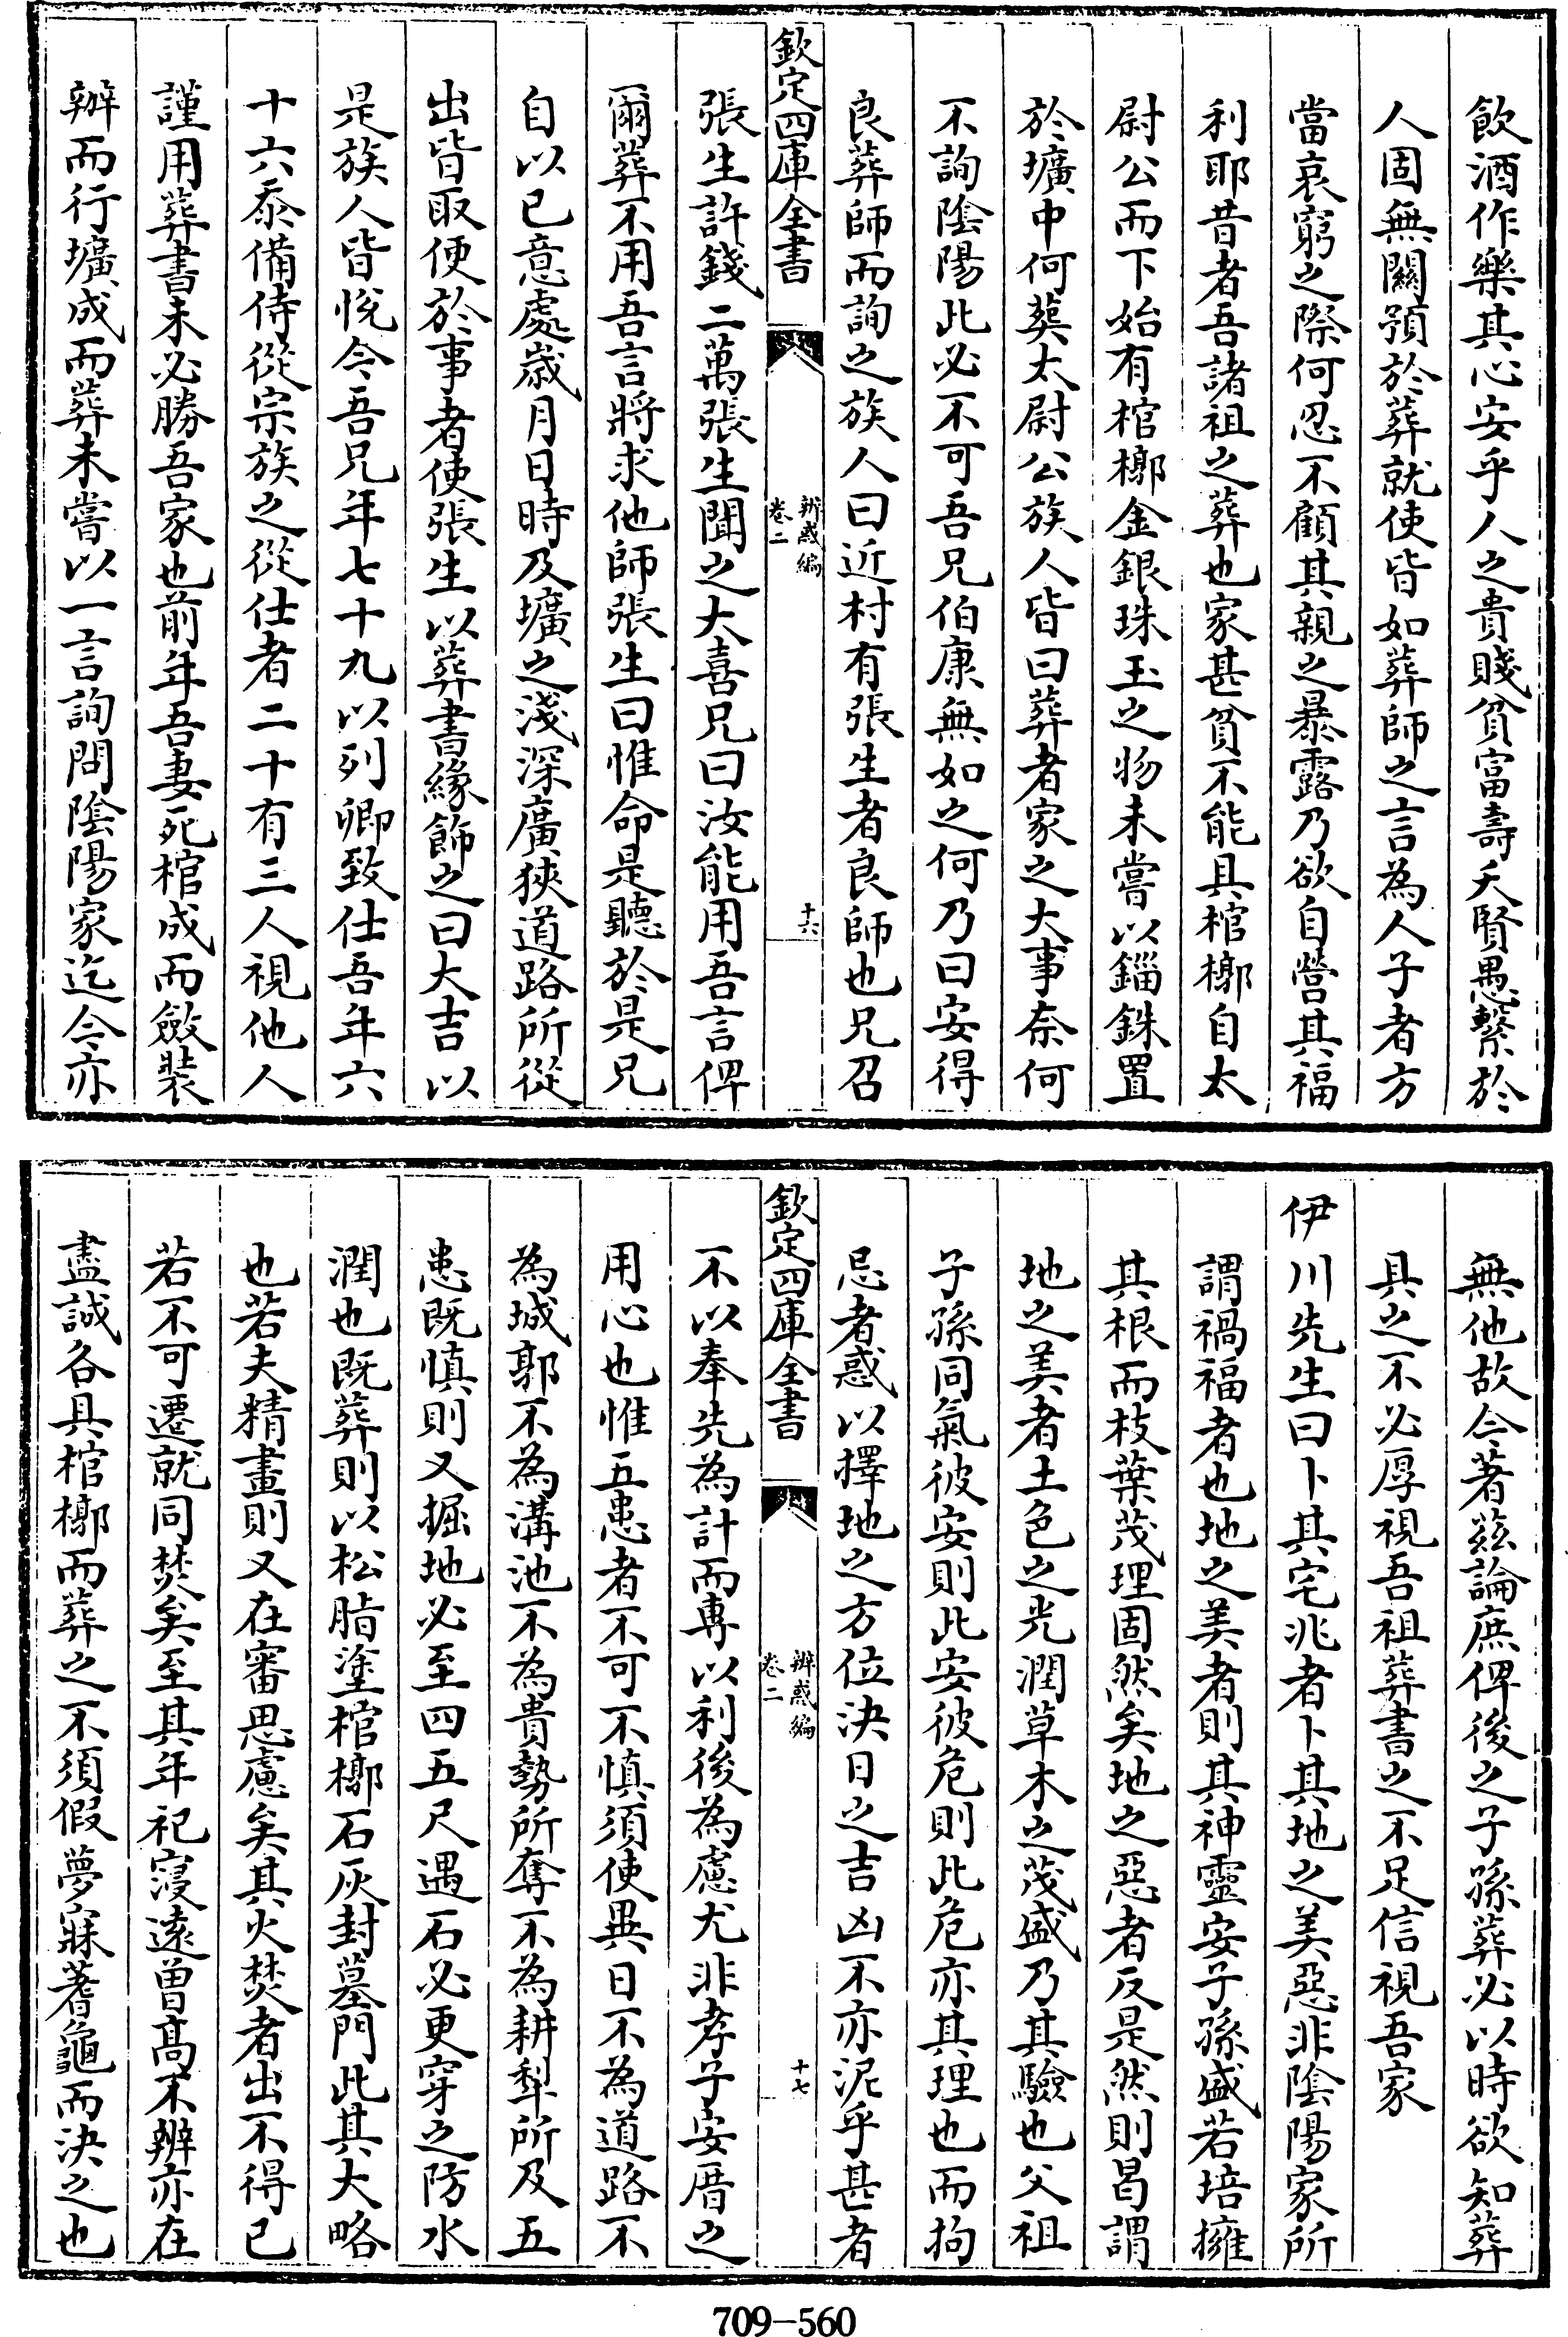 飲酒作樂其心安乎人之貴賤貧富壽夭賢愚繫於
人固無關預於葬就使皆如葬師之言為人子者方
當哀窮之際何忍不顧其親之暴露乃欲自營其福
利耶昔者吾諸祖之葬也家甚貧不能具棺槨自太
尉公而下始有棺槨金銀珠玉之物未嘗以錙銖置
於壙中何葬太尉公族人皆曰葬者家之大事奈何
不詢陰陽此必不可吾兄伯康無如之何乃曰安得
良葬師而詢之族人曰近村有張生者良師也兄召
欽定四庫全書
辨惑編
卷二
十六
張生許錢二萬張生聞之大喜兄曰汝能用吾言俾
爾葬不用吾言將求他師張生曰惟命是聽於是兄
自以已意處歲月日時及壙之淺深廣狹道路所從
出皆取便於事者使張生以葬書緣飾之曰大吉以
是族人皆悅今吾兄年七十九以列卿致仕吾年六
十六忝備侍從宗族之從仕者二十有三人視他人
謹用葬書未必勝吾家也前年吾妻死棺成而斂裝
辦而行壙成而葬未嘗以一言詢問陰陽家迄今亦
無他故今著兹論庶俾後之子孫葬必以時欲知葬
具之不必厚視吾祖葬書之不足信視吾家
伊川先生曰卜其宅兆者卜其地之美惡非陰陽家所
謂禍福者也地之美者則其神靈安子孫盛若培擁
其根而枝葉茂理固然矣地之惡者反是然則曷謂
地之美者土色之光潤草木之茂盛乃其驗也父祖
子孫同氣彼安則此安彼危則此危亦其理也而拘
忌者惑以擇地之方位決日之吉凶不亦泥乎甚者
欽定四庫全書
辨惑編
卷二
十七
不以奉先為計而專以利後為慮尤非孝子安厝之
用心也惟五患者不可不慎須使異日不為道路不
為城郭不為溝池不為貴勢所奪不為耕犁所及五
患既慎則又掘地必至四五尺遇石必更穿之防水
潤也既葬則以松脂塗棺槨石灰封墓門此其大略
也若夫精畫則又在審思慮矣其火焚者出不得已
若不可遷就同焚矣至其年祀寖遠曾高不辨亦在
盡誠各具棺槨而葬之不須假夢寐蓍龜而決之也
709-560